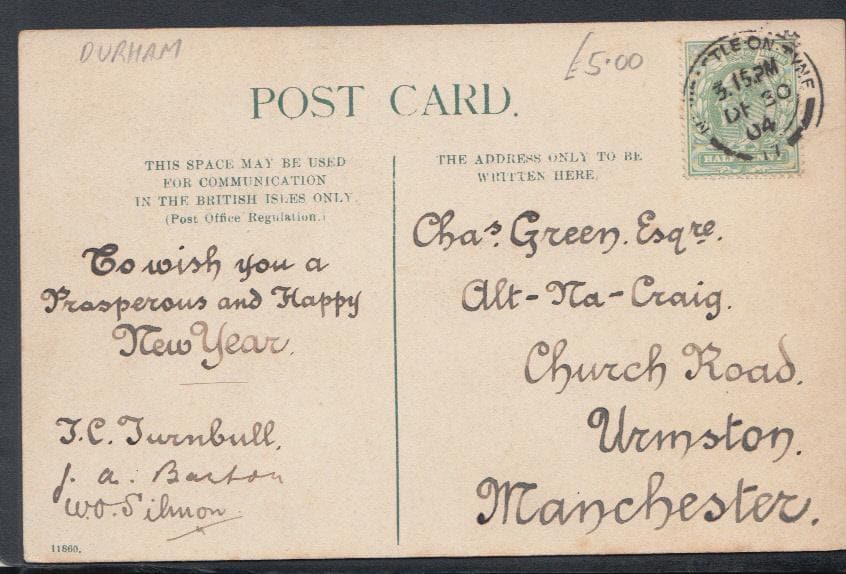 DURHAM
£5.00
POST CARD.
THIS SPACE MAY BE USED
FOR COMMUNICATION
IN THE BRITISH ISLES ONLY.
(Post Office Regulation.)
To wish you a
Prosperous and Happy
New Year.
T.C. Turnbull.
J. A. Barton
W.O.
11860.
THE ADDRESS ONLY TO BE
WRITTEN HERE.
Chas. Green. Esqre.
Alt-Na-Craig.
Church Road.
Urmston.
Manchester.
TLE ON TYNE
3.15.PM
DE 30
04
HALF